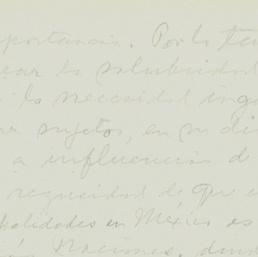 importancia. Por lo tan
ear la salubridad
la necesidad ing
sujetos, en su di
a influencias d
requesidad de que e
balidades en México es
Naciones, dond